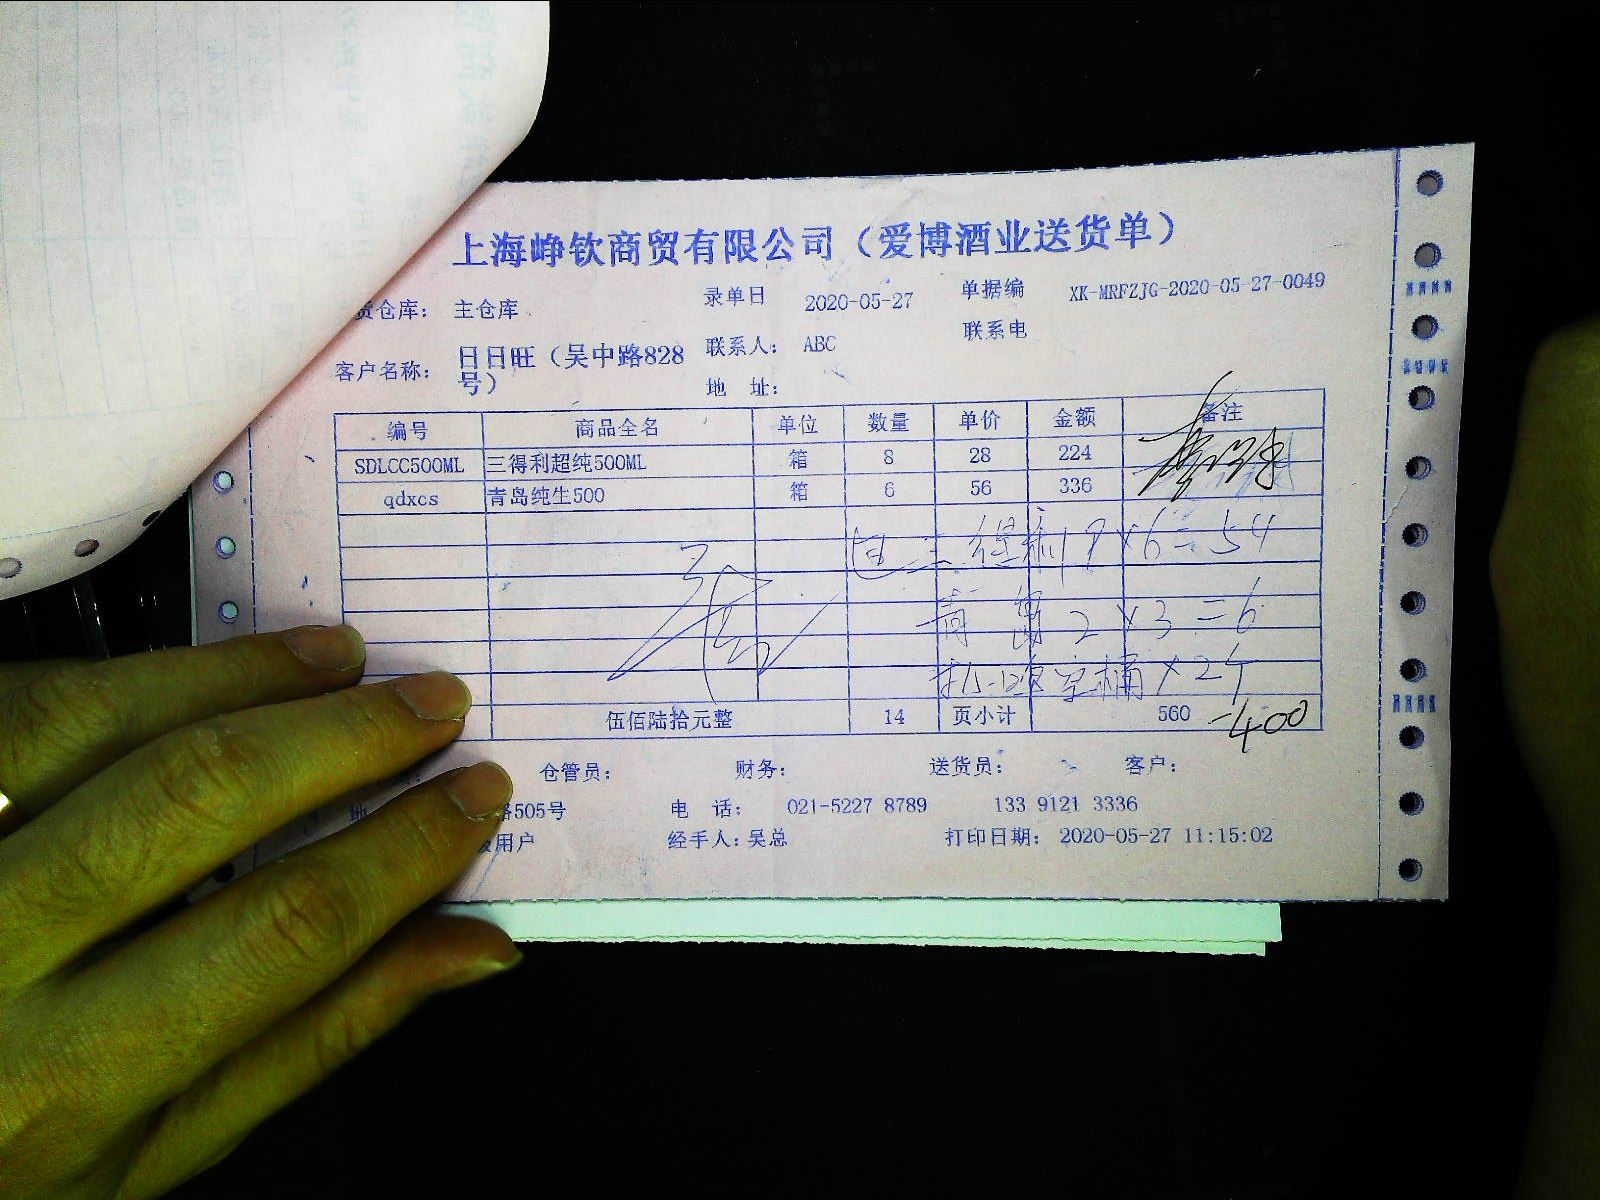 上海峥钦商贸有限公司（爱博酒业送货单）
货仓库： 主仓库 录单日 2020-05-27 单据编 XK-MRFZJG-2020-05-27-0049
客户名称： 日日旺（吴中路828号） 联系人： ABC 联系电
地 址：
编号 商品全名 单位 数量 单价 金额 备注
SDLCC500ML 三得利超纯500ML 箱 8 28 224
qdxcs 青岛纯生500 箱 6 56 336
三得利 9×6=54
青岛 2×3=6
空桶×24
伍佰陆拾元整 14 页小计 560 -400
仓管员： 财务： 送货员： 客户：
路505号 电 话： 021-5227 8789 133 9121 3336
级用户 经手人：吴总 打印日期： 2020-05-27 11:15:02